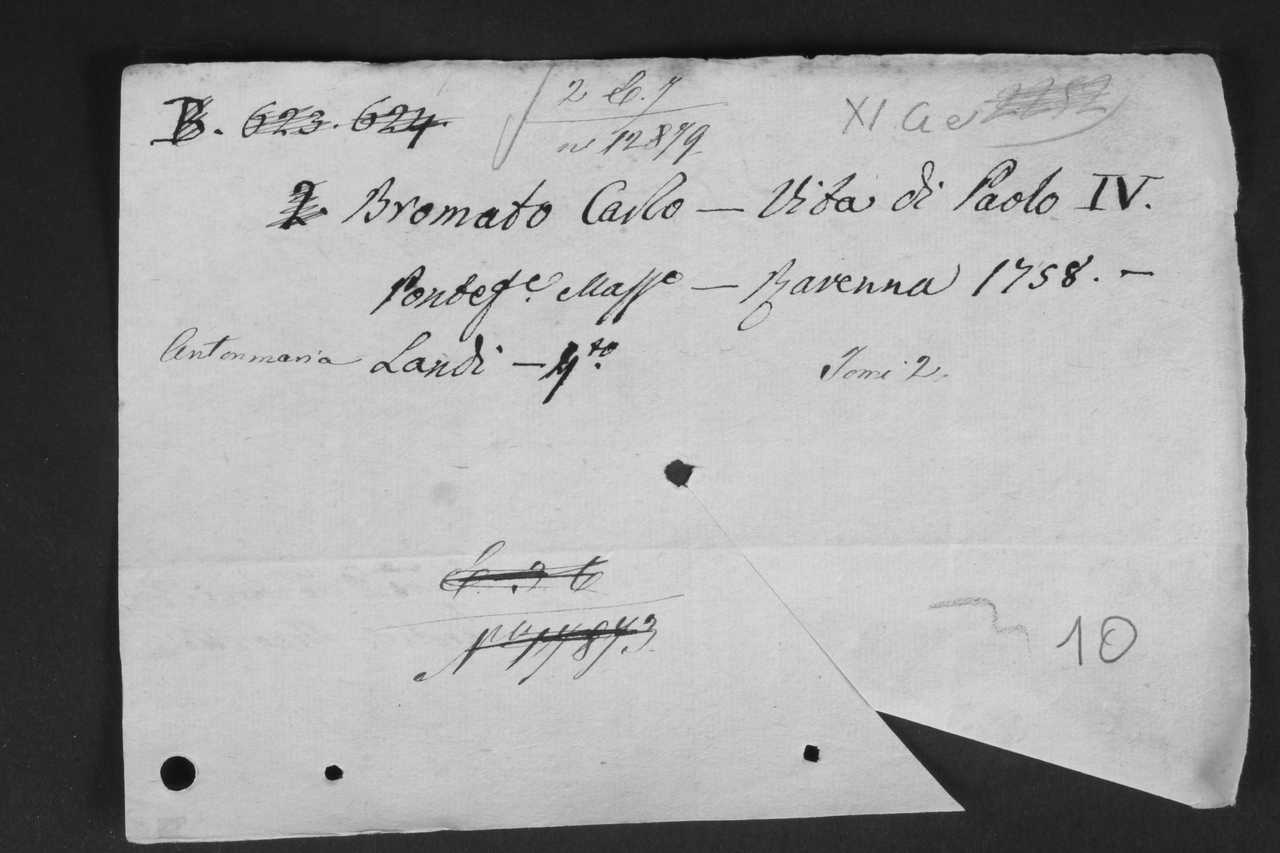 B. 623. 624.
2 C. 7
n 12879
XI
2 Bromato Carlo — Vita di Paolo IV.
Pontefe. Masso — Ravenna 1758. —
Antonmaria Landi — 4to. Tomi 2.
10